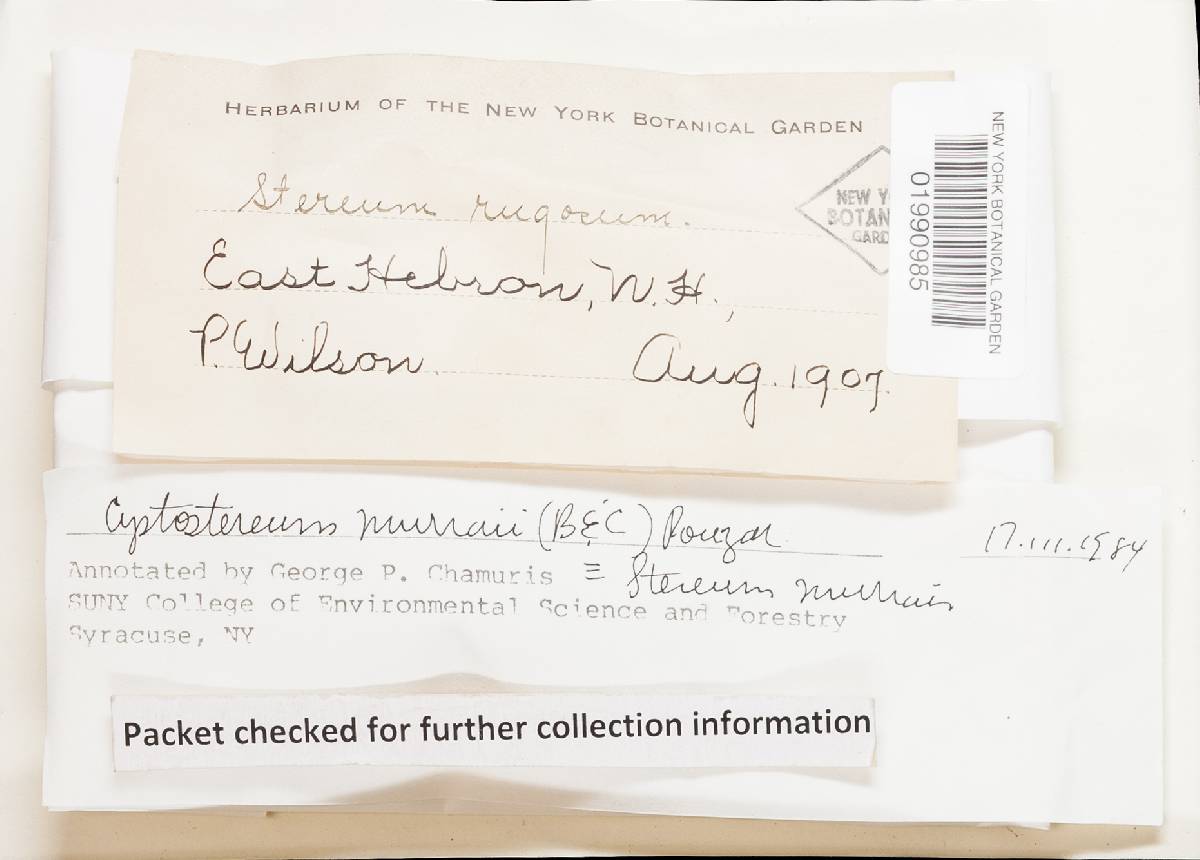 HERBARIUM OF THE NEW YORK BOTANICAL GARDEN
Stereum rugosum.
East Hebron, N.H.,
P. Wilson. Aug. 1907.
NEW Y
BOTAN
GARD
01990985
NEW YORK BOTANICAL GARDEN
Cystostereum murraii (B & C) Pouzar 17.iii.1984
Annotated by George P. Chamuris ≡ Stereum murraii
SUNY College of Environmental Science and Forestry
Syracuse, NY
Packet checked for further collection information